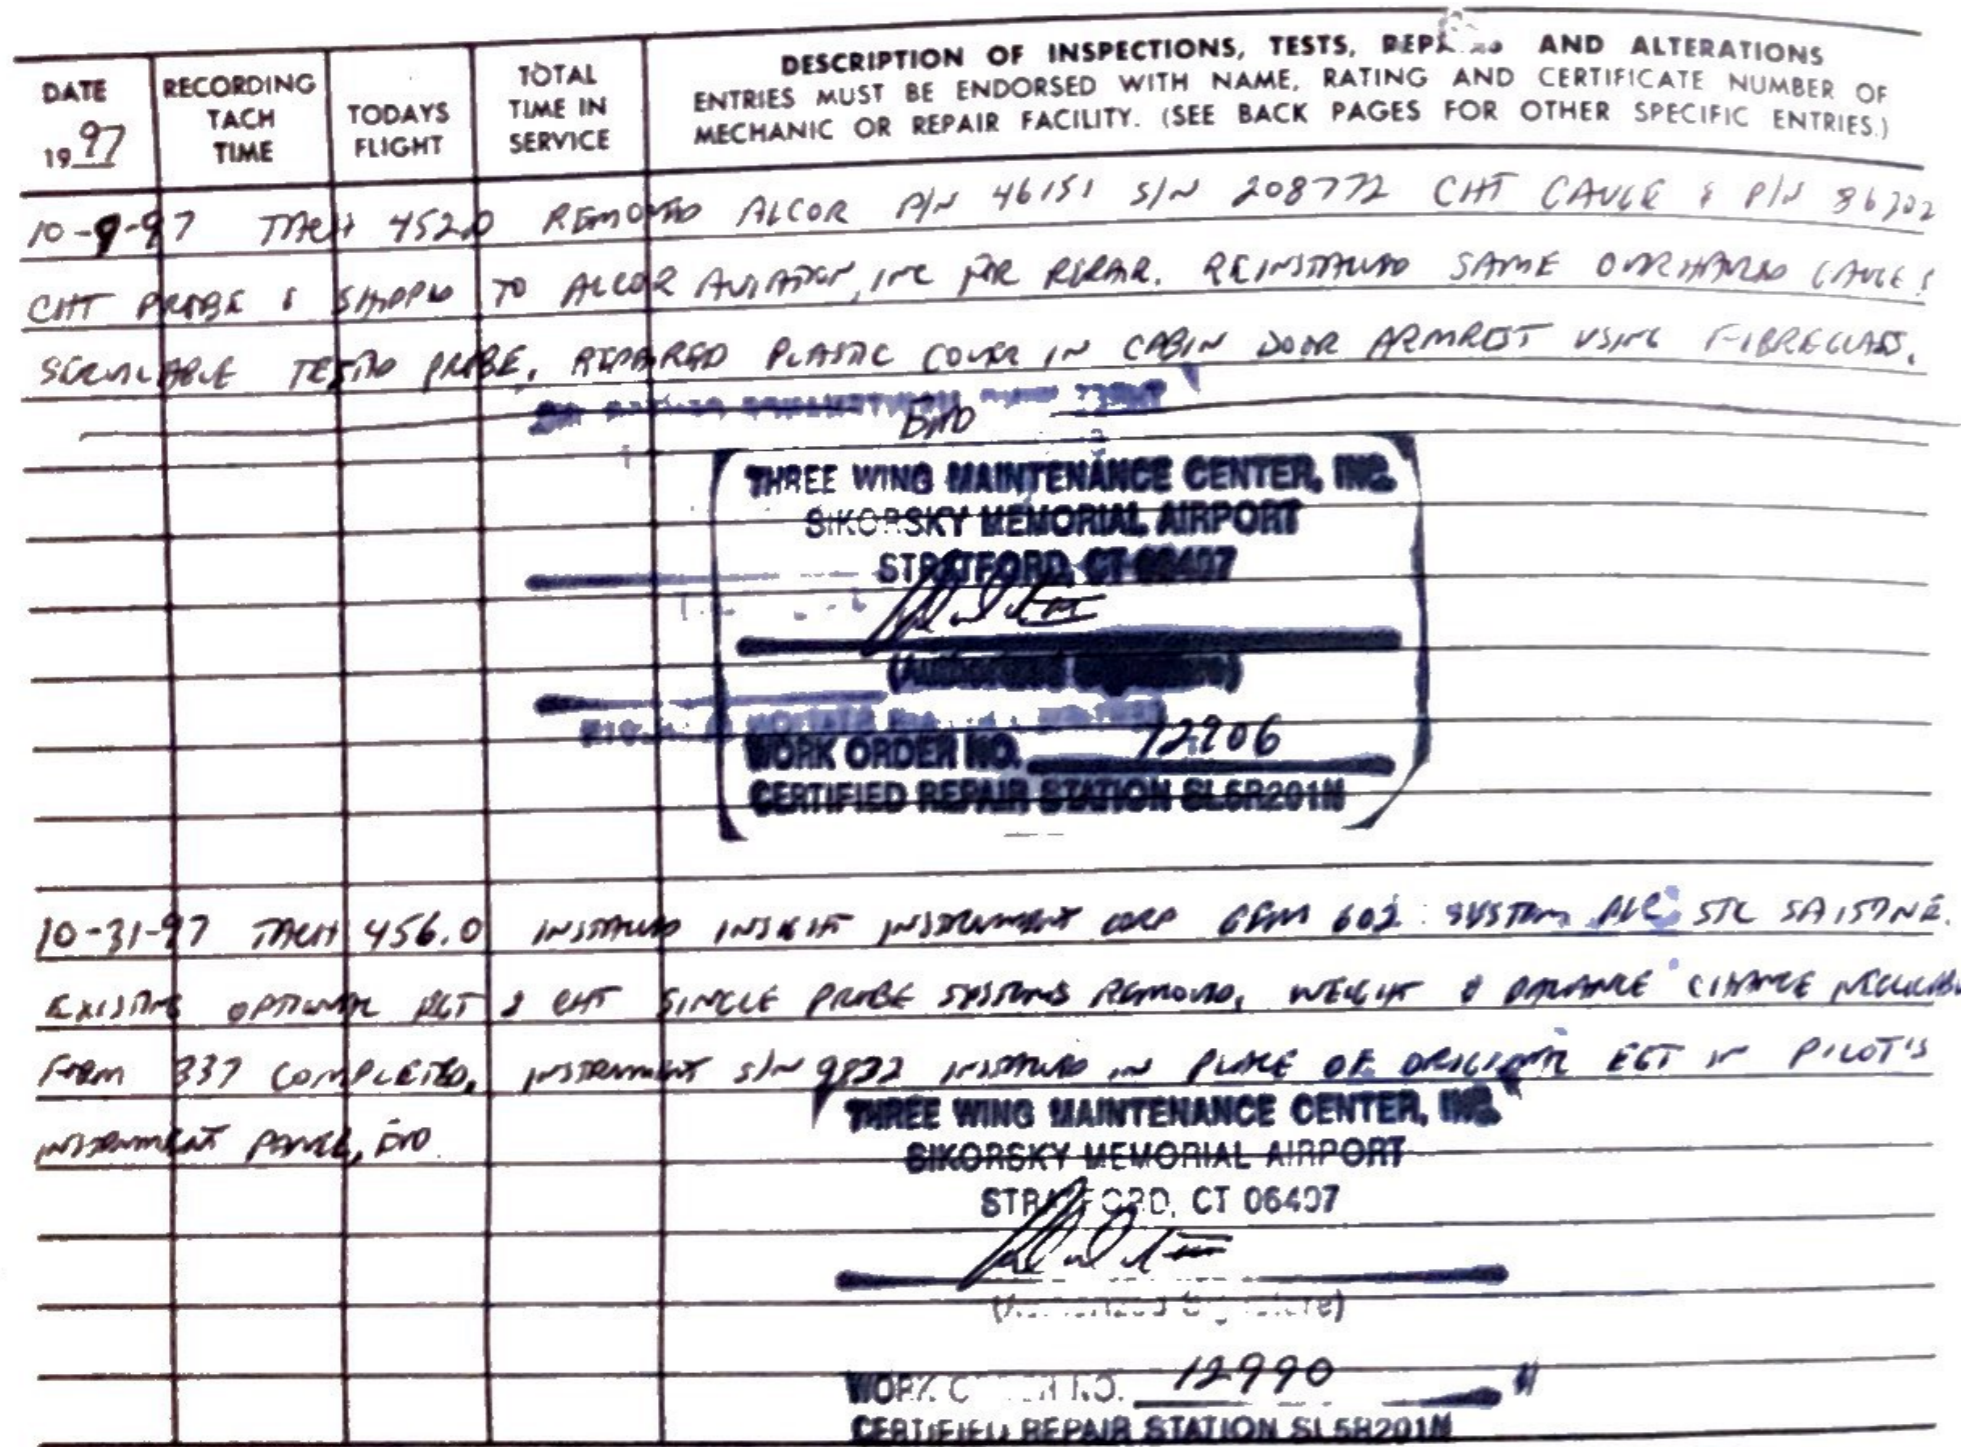 DATE
19 97
RECORDING
TACH
TIME
TODAYS
FLIGHT
TOTAL
TIME IN
SERVICE
DESCRIPTION OF INSPECTIONS, TESTS, AND ALTERATIONS
ENTRIES MUST BE ENDORSED WITH NAME, RATING AND CERTIFICATE NUMBER OF
MECHANIC OR REPAIR FACILITY. (SEE BACK PAGES FOR OTHER SPECIFIC ENTRIES.)
10-9-97 TACH 452.0 REMOVED ALCOR P/N 46151 S/N 208772 CHT GAUGE & P/N
CHT PROBE & SHIPPED TO ALCOR AVIATION, INC FOR REPAIR. REINSTALLED SAME OVERHAULED GAUGE &
SERVICEABLE TESTED PROBE. REPAIRED PLASTIC COVER IN CABIN DOOR ARMREST USING FIBREGLASS.
END
THREE WING MAINTENANCE CENTER, INC.
SIKORSKY MEMORIAL AIRPORT
STRATFORD, CT 06497
(Authorized Signature)
WORK ORDER NO. 12906
CERTIFIED REPAIR STATION SL5R201N
10-31-97 TACH 456.0 INSTALLED INSIGHT INSTRUMENT CORP GEM 602 SYSTEM STC
EXISTING OPTIONAL EGT & CHT SINGLE PROBE SYSTEMS REMOVED, WEIGHT & BALANCE CHANGE
FORM 337 COMPLETED, INSTRUMENT S/N INSTALLED IN PLACE OF ORIGINAL EGT IN PILOT'S
INSTRUMENT PANEL, END
THREE WING MAINTENANCE CENTER, INC.
SIKORSKY MEMORIAL AIRPORT
STRATFORD, CT 06497
(Authorized Signature)
WORK ORDER NO. 12990
CERTIFIED REPAIR STATION SL5R201N